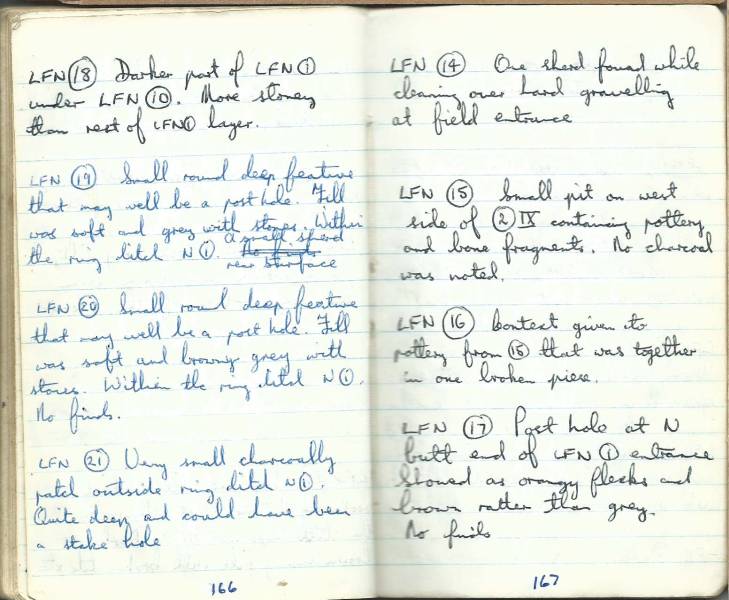 LFN (18) Darker part of LFN (1)
under LFN (10). More stoney
than rest of LFN (1) layer.
LFN (19) Small round deep feature
that may well be a post hole. Fill
was soft and grey with stones. Within
the ring ditch N (1). a small sherd
No finds.
near surface
LFN (20) Small round deep feature
that may well be a post hole. Fill
was soft and browny grey with
stones. Within the ring ditch N (1).
No finds.
LFN (21) Very small charcoally
patch outside ring ditch N (1).
Quite deep and could have been
a stake hole
166
LFN (14) One sherd found while
cleaning over hard gravelling
at field entrance
LFN (15) Small pit on west
side of (2) IX containing pottery
and bone fragments. No charcoal
was noted.
LFN (16) Context given to
pottery from (15) that was together
in one broken piece.
LFN (17) Post hole at N
butt end of LFN (1) entrance
Showed as orangy flecks and
brown rather than grey.
No finds
167